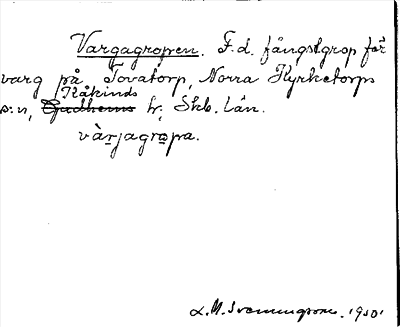 Vargagropen. F.d. fångstgrop för
varg på Tovatorp, Norra Kyrketorps
Kåkinds
s:n, Gudhems hr, Skb. län.
värjagropa.
L.M. Svenungsson. 1930